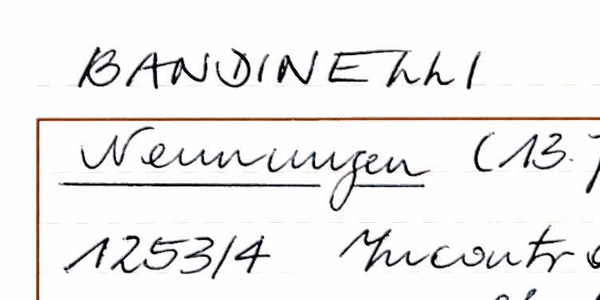 BANDINELLI
Nennungen (13. J
1253/4 Incontr